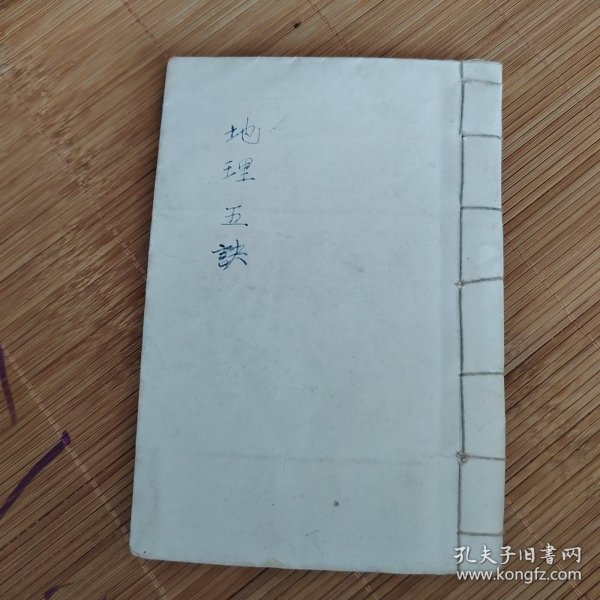 地理五訣
孔夫子旧書网
www.kongfz.com